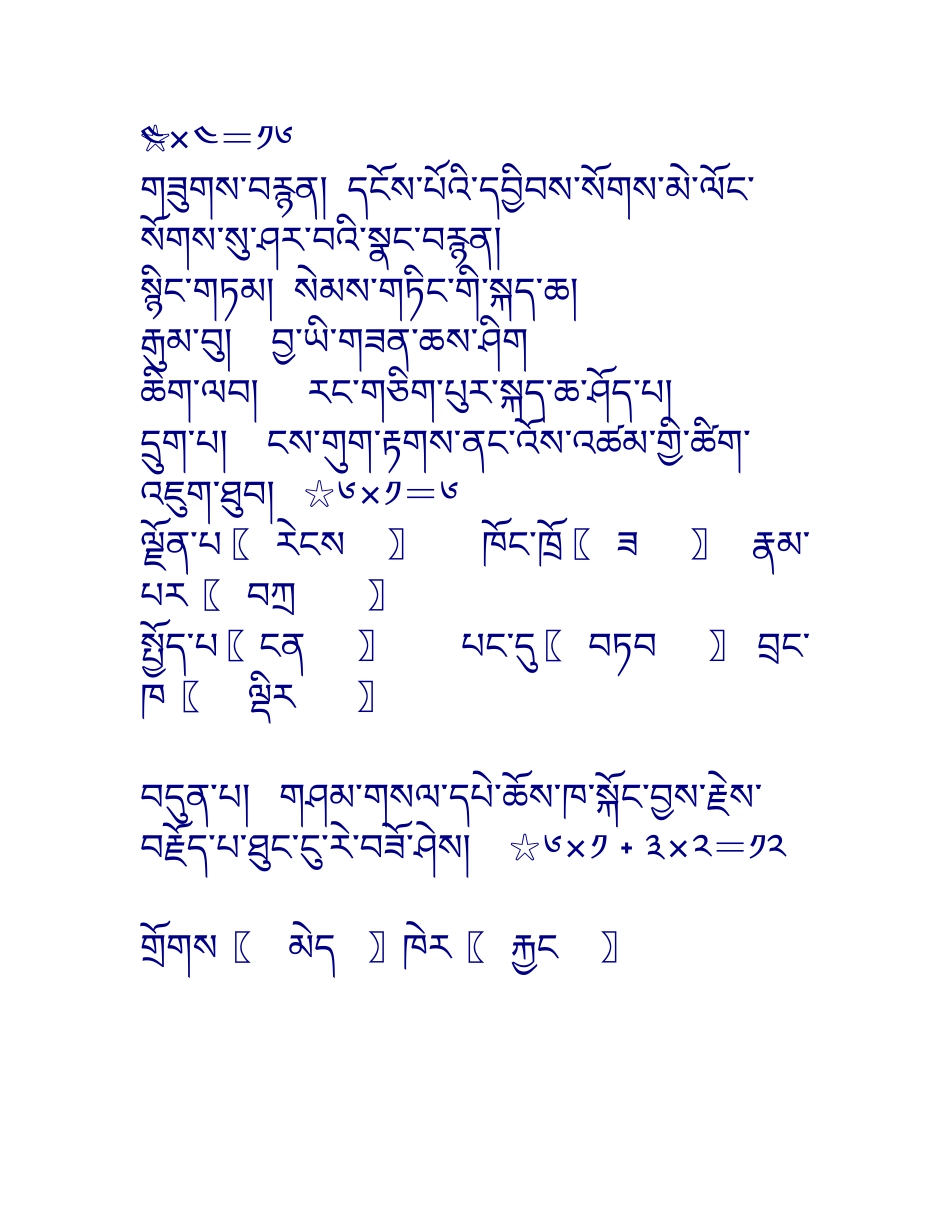 ☆༤×༤=༡༦
གཟུགས་བརྙན། དངོས་པོའི་དབྱིབས་སོགས་མེ་ལོང་
སོགས་སུ་ཤར་བའི་སྣང་བརྙན།
སྙིང་གཏམ། སེམས་གཏིང་གི་སྐད་ཆ།
རྒྱམ་བུ། བྱ་ཡི་གཟན་ཆས་ཤིག
ཆིག་ལབ། རང་གཅིག་པུར་སྐད་ཆ་ཤོད་པ།
དྲུག་པ། ངས་གུག་རྟགས་ནང་འོས་འཚམ་གྱི་ཚིག་
འཇུག་ཐུབ། ☆༦×༡=༦
ལྗོན་པ〖 རེངས 〗 ཁོང་ཁྲོ〖 ཟ 〗 རྣམ་
པར〖 བཀྲ 〗
སྤྱོད་པ〖 ངན 〗 པང་དུ〖 བཏབ 〗 བྲང་
ཁ〖 ལྡིར 〗
བདུན་པ། གཤམ་གསལ་དཔེ་ཆོས་ཁ་སྐོང་བྱས་རྗེས་
བརྗོད་པ་ཐུང་ངུ་རེ་བཟོ་ཤེས། ☆༦×༡ + ༣×༢=༡༢
གྲོགས〖 མེད 〗ཁེར〖 རྐྱང 〗